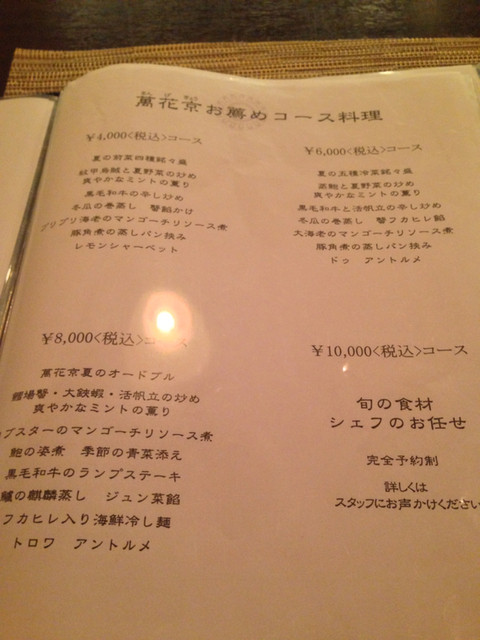 萬花京お薦めコース料理
￥4,000<税込>コース
夏の前菜四種銘々盛
紋甲烏賊と夏野菜の炒め
爽やかなミントの薫り
黒毛和牛の辛し炒め
冬瓜の巻蒸し 蟹餡かけ
プリプリ海老のマンゴーチリソース煮
豚角煮の蒸しパン挟み
レモンシャーベット
￥6,000<税込>コース
夏の五種冷菜銘々盛
蒸鮑と夏野菜の炒め
爽やかなミントの薫り
黒毛和牛と活帆立の辛し炒め
冬瓜の巻蒸し 蟹フカヒレ餡
大海老のマンゴーチリソース煮
豚角煮の蒸しパン挟み
ドゥ アントルメ
￥8,000<税込>コース
萬花京夏のオードブル
鱈場蟹・大鋏蝦・活帆立の炒め
爽やかなミントの薫り
ブスターのマンゴーチリソース煮
鮑の姿煮 季節の青菜添え
黒毛和牛のランプステーキ
鱸の麒麟蒸し ジュン菜餡
フカヒレ入り海鮮冷し麺
トロワ アントルメ
￥10,000<税込>コース
旬の食材
シェフのお任せ
完全予約制
詳しくは
スタッフにお声かけください